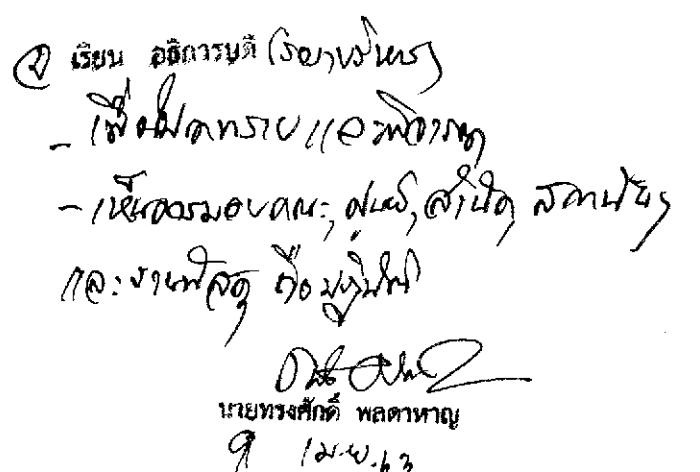 ② เรียน อธิการบดี (รองฯบริหาร)
- เพื่อโปรดทราบและพิจารณา
- เห็นควรมอบคณะ, ศูนย์, สำนัก, สถาบันฯ
และงานพัสดุ ถือปฏิบัติ
นายทรงศักดิ์ พลดาหาญ
9 เม.ย. 63